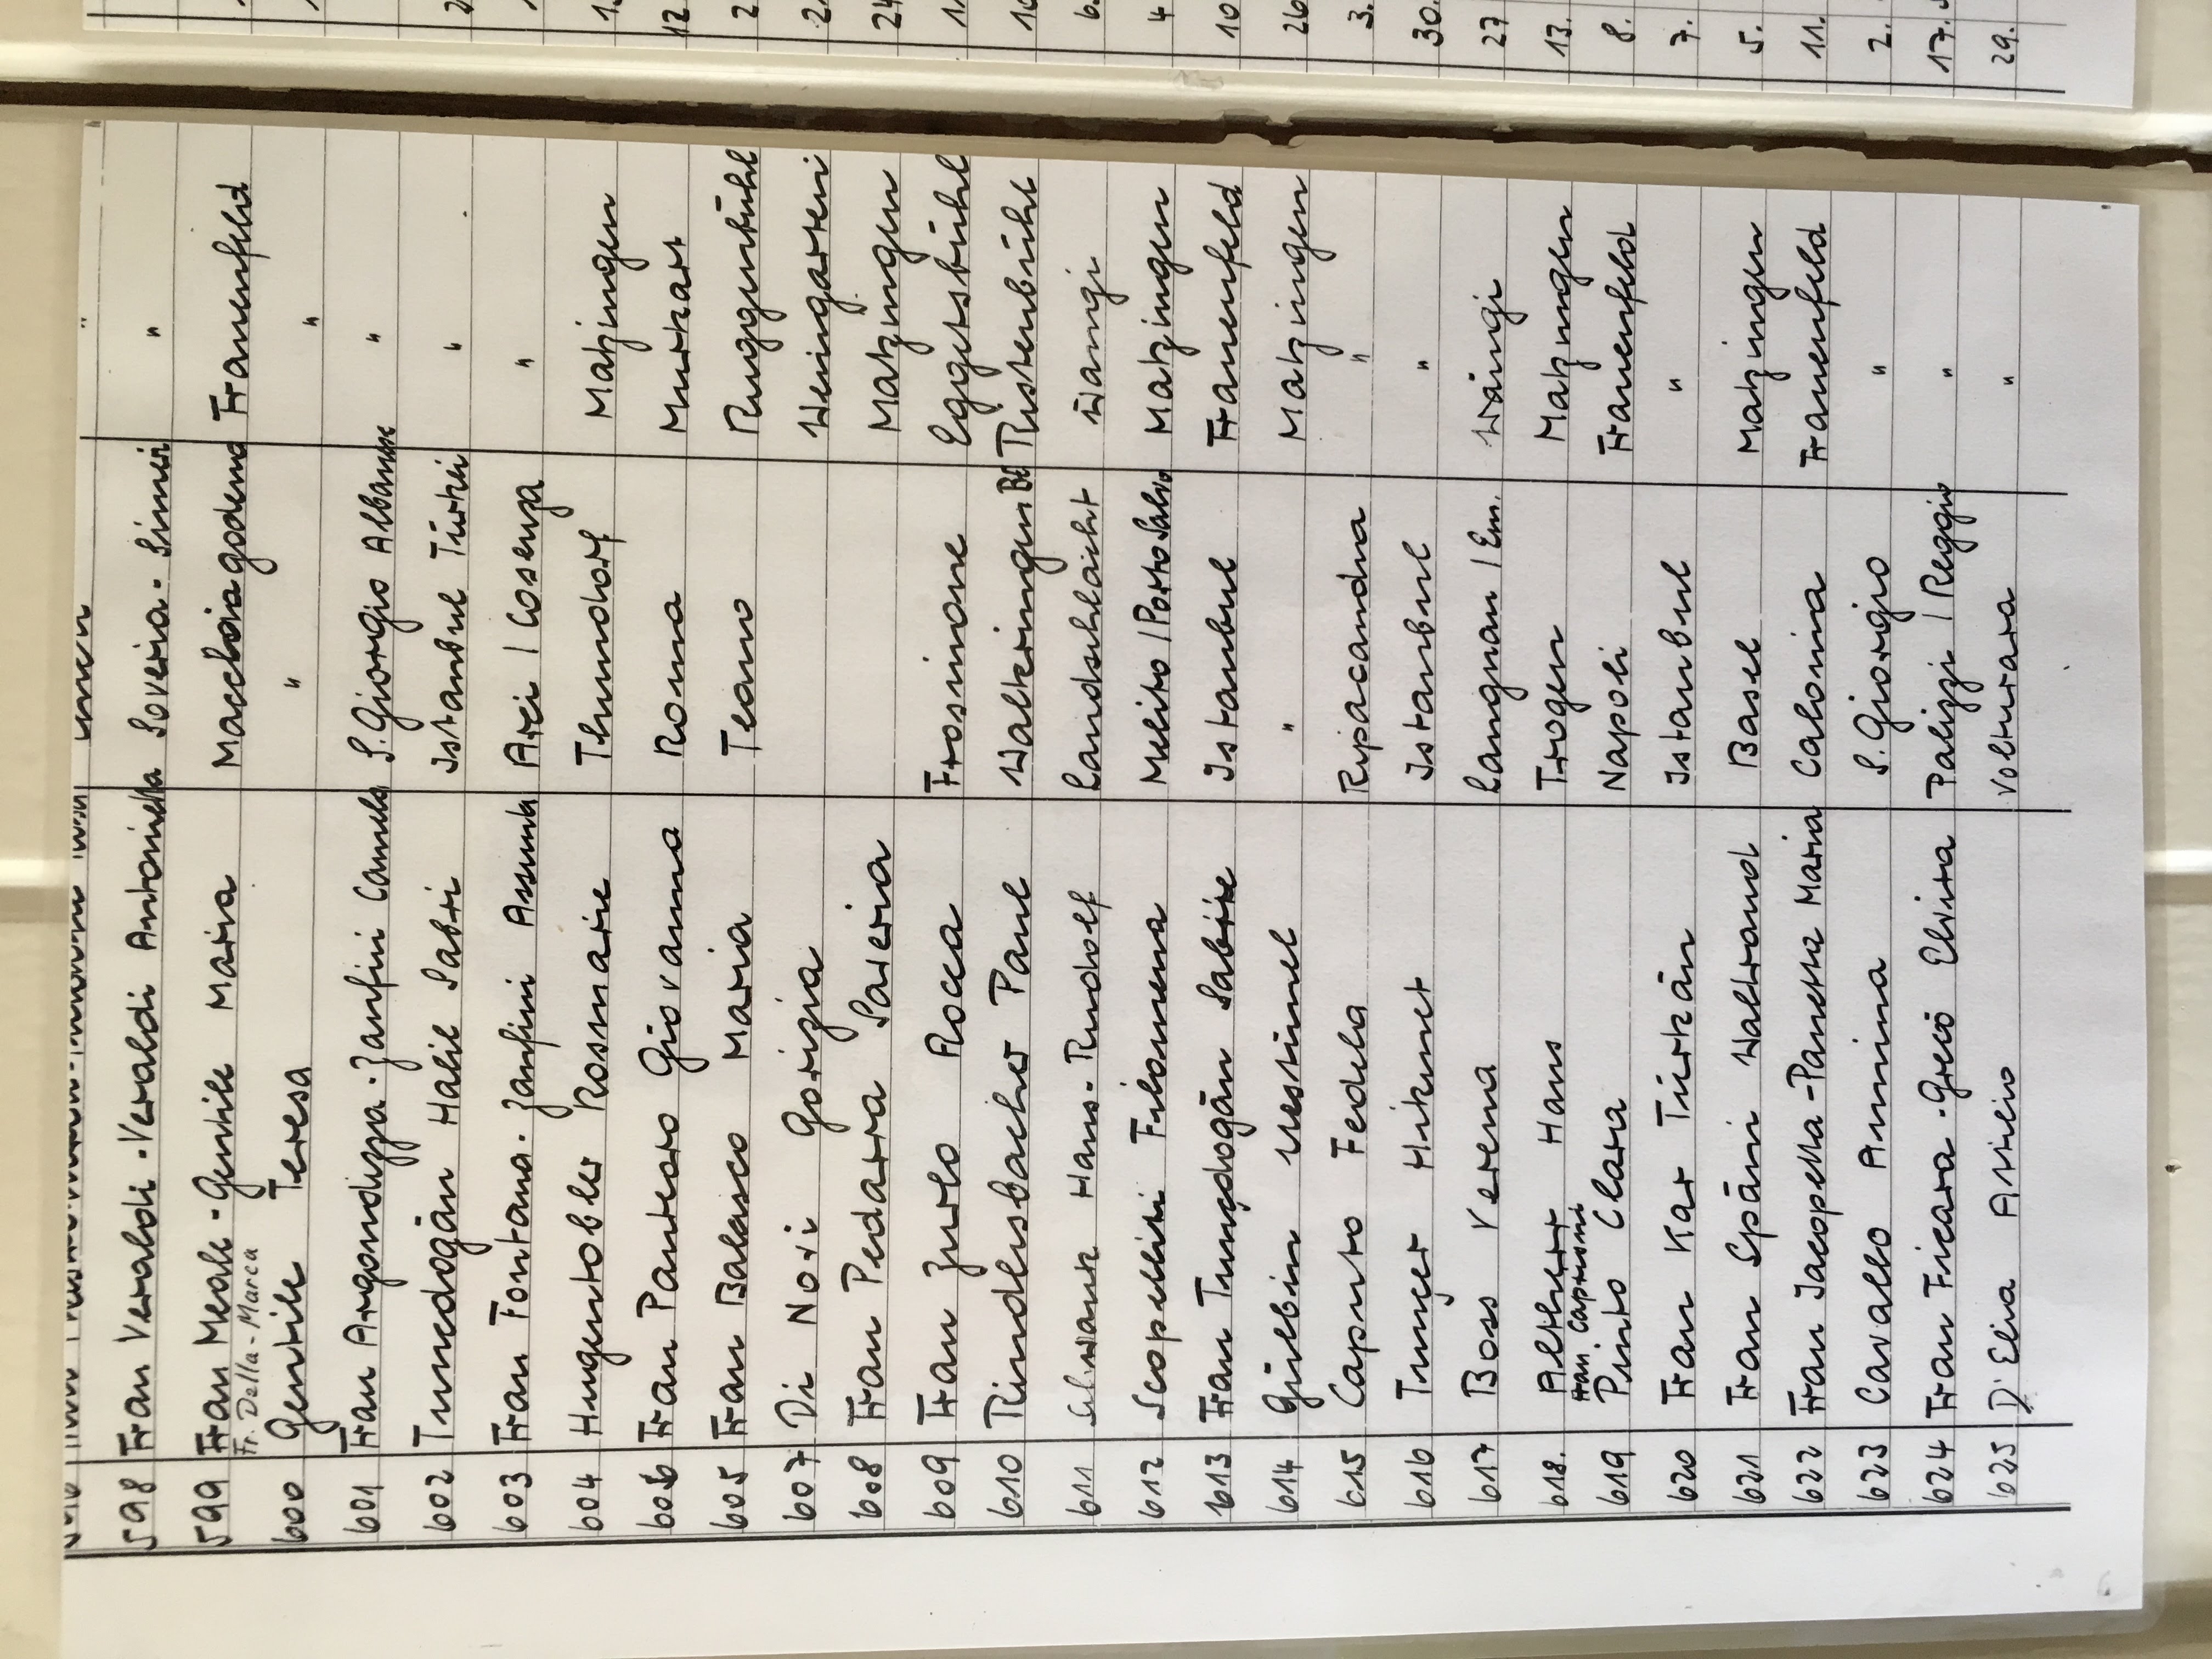 598 Frau Veraldi-Veraldi Antonietta Soveria-Simeri "
599 Frau Meale-Gentile Maria Macchiagodena Frauenfeld
Fr. Della-Marca
600 Gentile Teresa " "
601 Frau Argondizza-Zanfini Camela S. Giorgio Albanese "
602 Tuncdogān Halil Sabri Istanbul Türkei "
603 Frau Fontana-Zanfini Assunta Arci / Cosenza "
604 Hugentobler Rosmarie Thundorf Matzingen
606 Frau Pantoro Giovanna Roma Murkart
605 Frau Balasco Maria Teano Ruggenbühl
607 Di Nori Gorizia Weingarten
608 Frau Pedarra Saveria Matzingen
609 Frau Zurlo Rocca Frosinone Eggetsbühl
610 Rindlisbacher Paul Walkringen BE Tustenbühl
611 Schwank Hans-Rudolf Landschlacht Wängi
612 Scopelliti Filomena Melito / Porto Salvo Matzingen
613 Frau Tunçdogān Sabrie Istanbul Frauenfeld
614 Gülbin " Matzingen
615 Caputo Fedela Ripacandida "
616 Tunçer Hikmet Istanbul "
617 Boss Verena Langnau / Em. Wängi
618. Altherr Hans Trogen Matzingen
Frau Caproni
619 Pinto Clara Napoli Frauenfeld
620 Frau Kar Türkān Istanbul "
621 Frau Spāni Waltraud Basel Matzingen
622 Frau Iacopetta-Panetta Maria Calonina Frauenfeld
623 Cavallo Annina S. Giorgio "
624 Frau Ficara-Grecò Elvira Palizzi / Reggio "
625 D'Elia Assilio Volturara "
12
24
10
4
10
26
3.
30.
27
13.
8.
7.
5.
11.
2.
17.
29.